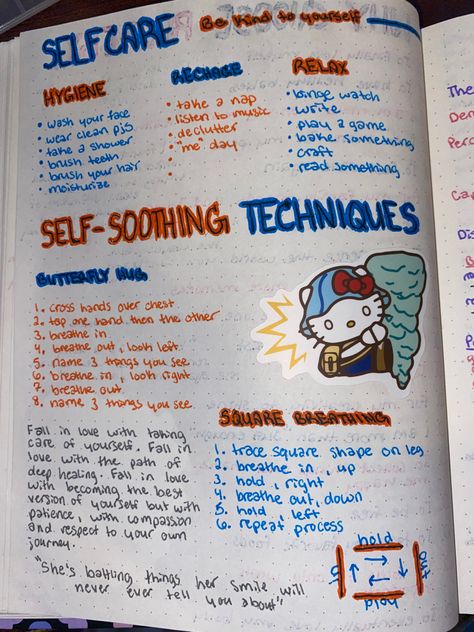 SELFCARE Be kind to yourself
HYGIENE
• wash your face
• wear clean pjs
• take a shower
• brush teeth
• brush your hair
• moisturize
RECHAGE
• take a nap
• listen to music
• declutter
• "me" day
RELAX
• binge watch
• write
• play a game
• bake something
• craft
• read something
SELF-SOOTHING TECHNIQUES
BUTTERFLY HUG
1. cross hands over chest
2. tap one hand then the other
3. breathe in
4. breathe out, look left
5. name 3 things you see
6. breathe in, look right
7. breathe out
8. name 3 things you see
SQUARE BREATHING
1. trace square shape on leg
2. breathe in, up
3. hold, right
4. breathe out, down
5. hold, left
6. repeat process
hold
in
out
Fall in love with taking
care of yourself. Fall in
love with the path of
deep healing. Fall in love
with becoming the best
version of yourself but with
patience, with compassion
and respect to your own
journey.
"She's battling things her smile will
never ever tell you about"